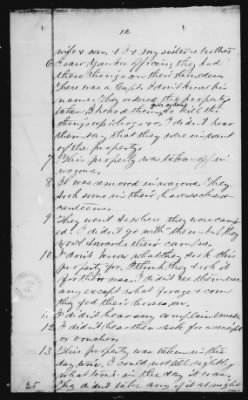 12
wife & son, & I & my sister & brother
6 I saw Yankee officers, they had
these things on their shoulders
There was a Capt. I don't know his
name. They ordered the property
taken. I heard them
things up &c. I didn't hear
them say that they were in want
of the property.
7 This property was taken off in
wagons.
8 It was moved in wagons. They
took some in their haversacks &
canteens.
9 They went to where they were camp
ed. I didn't go with them but they
went towards their camps.
10 I don't know what they took this
property for, I think they took it
for their use. I didn't see them use
any except what forage & corn
they fed their horses on.
11 I didn't hear any complaint made.
12 I didn't hear them ask for a receipt
or voucher.
13 This property was taken in the
day time, I could not tell rightly
what time in the day it was.
They didn't take any of it at night
25